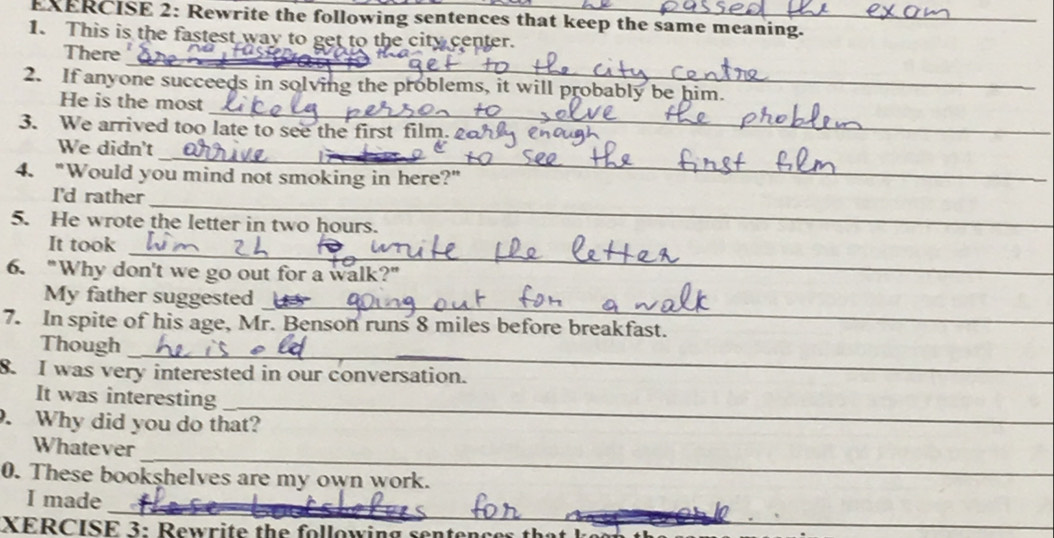 he passed the exam
EXERCISE 2: Rewrite the following sentences that keep the same meaning.
1. This is the fastest way to get to the city center.
There is no faster way than this to get to the city centre
2. If anyone succeeds in solving the problems, it will probably be him.
He is the most likely person to solve the problem
3. We arrived too late to see the first film. early enough
We didn't arrive to see the first film
4. "Would you mind not smoking in here?"
I'd rather
5. He wrote the letter in two hours.
It took him 2h to write the letter
6. "Why don't we go out for a walk?"
My father suggested going out for a walk
7. In spite of his age, Mr. Benson runs 8 miles before breakfast.
Though he is old
8. I was very interested in our conversation.
It was interesting
9. Why did you do that?
Whatever
0. These bookshelves are my own work.
I made these bookshelves for my work.
XERCISE 3: Rewrite the following sentences that keep the same meaning